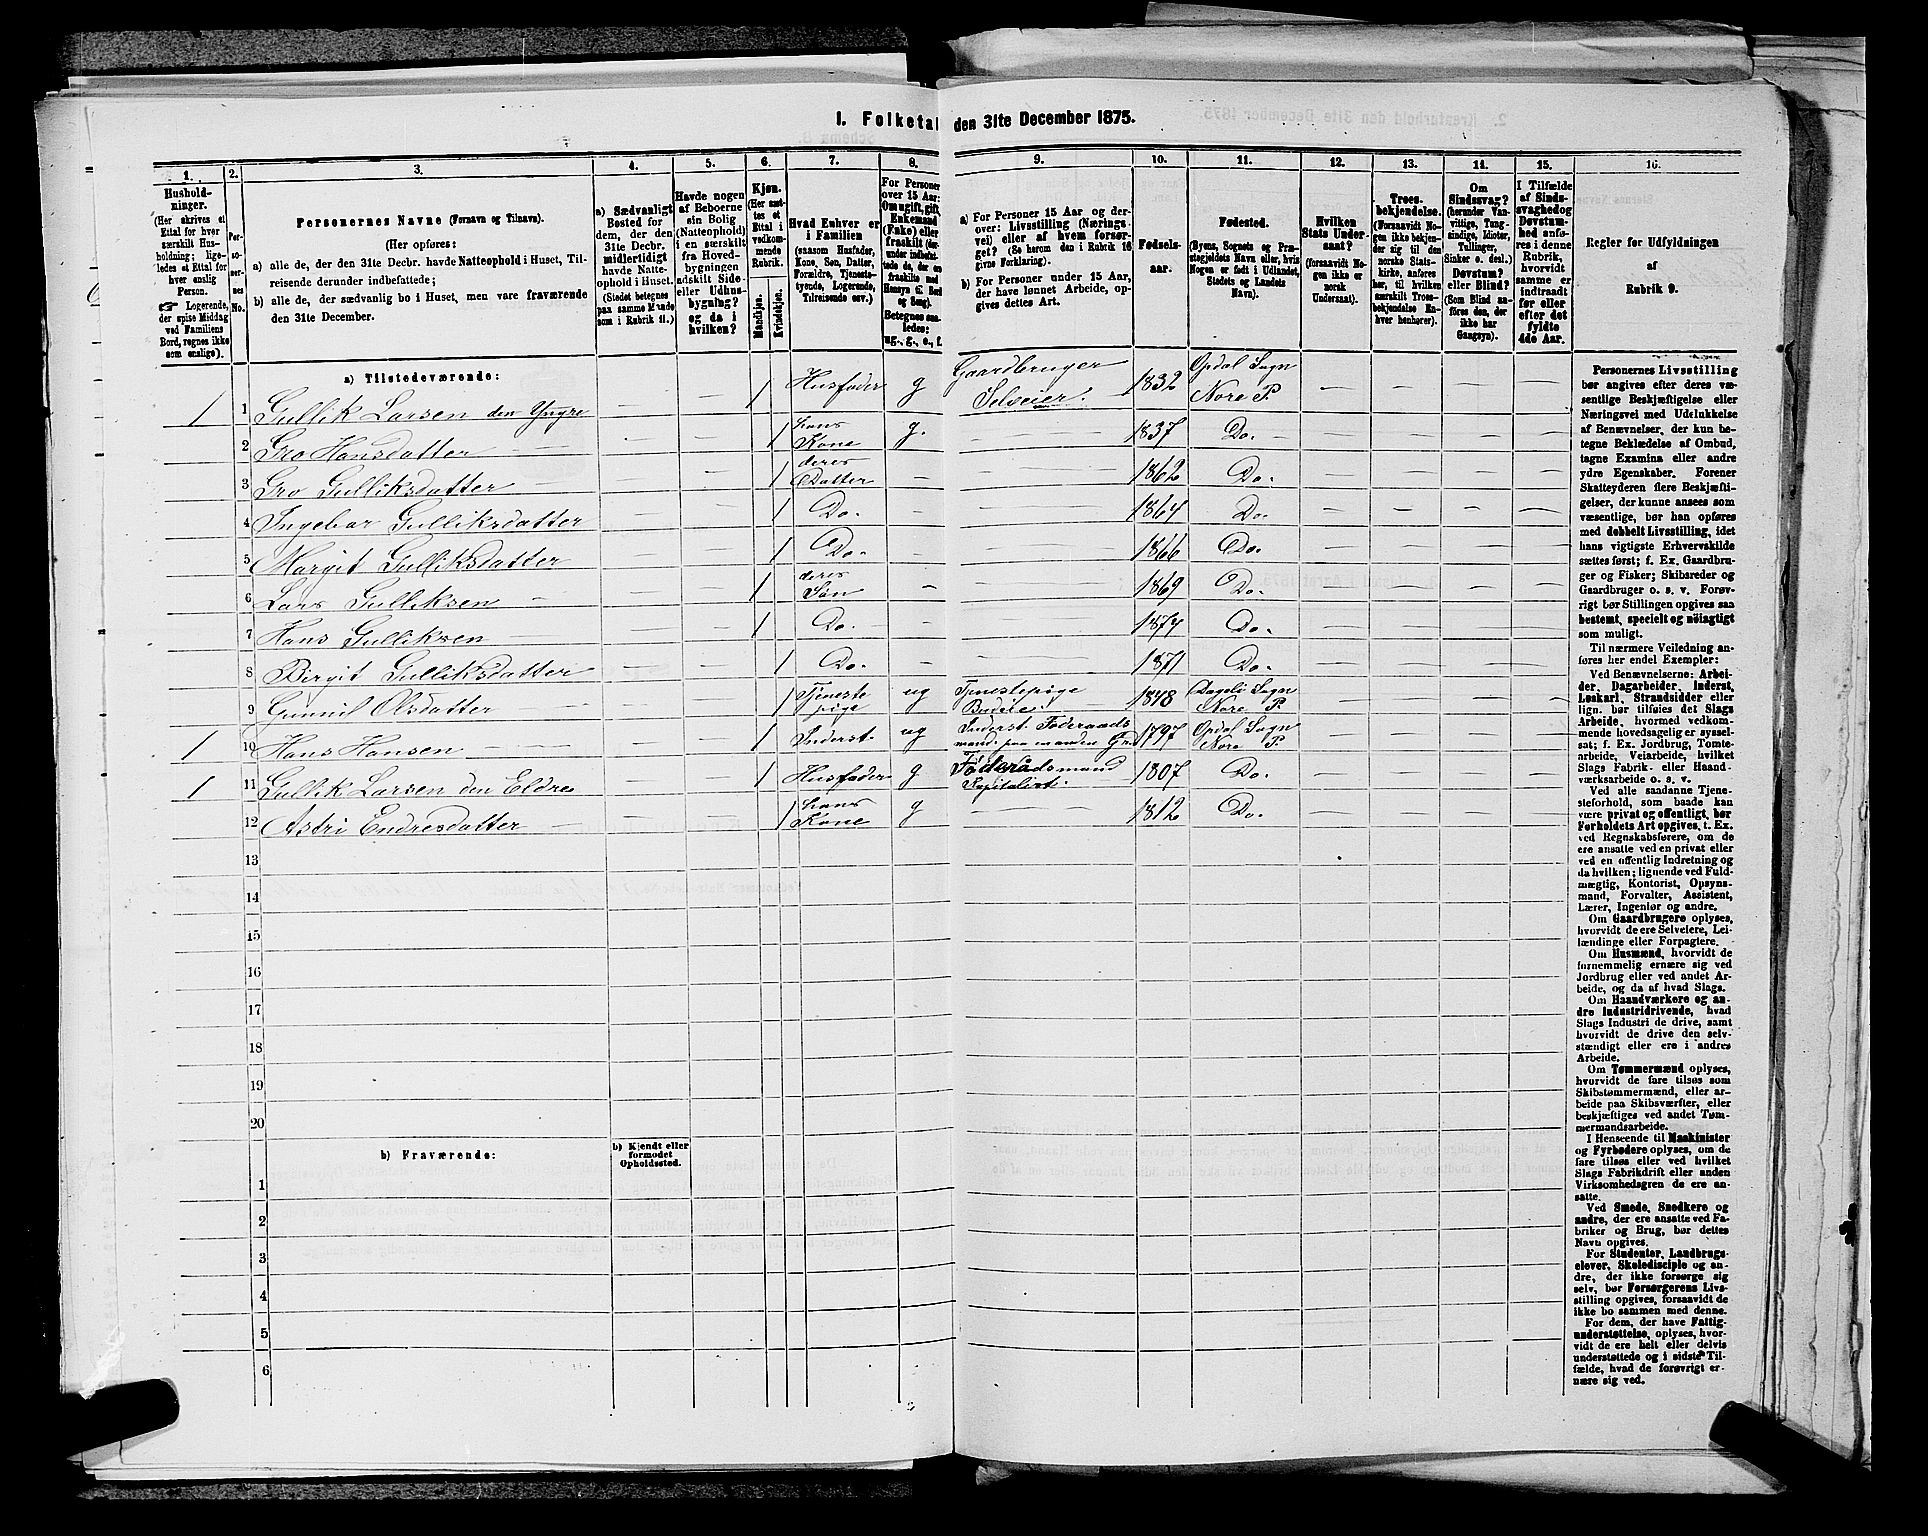 1. Folketal den 31te December 1875.
1. 2. 3. 4. 5. 6. 7. 8. 9. 10. 11. 12. 13. 14. 15. 16.
Hushold-
ninger.
(Her skrives et
Ettal for hver
særskilt Hus-
holdning; lige-
ledes et Ettal for
hver enslig
Person.
☞ Logerende,
der spise Middag
ved Familiens
Bord, regnes ikke
som enslige).
Per-
so-
ner-
nes
No.
Personernes Navne (Fornavn og Tilnavn).
(Her opføres:
a) alle de, der den 31te Decbr. havde Natteophold i Huset, Til-
reisende derunder indbefattede;
b) alle de, der sædvanlig bo i Huset, men vare fraværende
den 31te December.
a) Sædvanligt
Bosted for
dem, der den
31te Decbr.
midlertidigt
havde Natte-
ophold i Huset.
(Stedet betegnes
paa samme Maade
som i Rubrik 11.)
Havde nogen
af Beboerne
sin Bolig
(Natteophold)
i en særskilt
fra Hoved-
bygningen
adskilt Side-
eller Udhus-
bygning?
og da i
hvilken?
Kjøn.
(Her sæt-
tes et
Ettal i
vedkom-
mende
Rubrik.
Mandkjøn.
Kvindekjøn.
Hvad Enhver er
i Familien
(saasom Husfader,
Kone, Søn, Datter,
Forældre, Tjeneste-
tyende, Logerende,
Tilreisende osv.)
For Personer
over 15 Aar:
Om ugift, gift,
Enkemand
(Enke) eller
fraskilt (der-
under indbefat-
tede de, der ere
fraskilte med
Hensyn til Bord
og Seng).
Betegnes saa-
ledes:
ug., g., e., f.
a) For Personer 15 Aar og der-
over: Livsstilling (Nærings-
vei) eller af hvem forsør-
get? (Se herom den i Rubrik 16
givne Forklaring).
b) For Personer under 15 Aar,
der have lønnet Arbeide, op-
gives dettes Art.
Fødsels-
aar.
Fødested.
(Byens, Sognets og Præ-
stegjeldets Navn eller, hvis
Nogen er født i Udlandet,
Stedets og Landets
Navn).
Hvilken
Stats Under-
saat?
(forsaavidt No-
gen ikke er
norsk
Undersaat).
Troes-
bekjendelse.
(Forsaavidt No-
gen ikke bekjen-
der sig til den
norske Stats-
kirke, anføres
her, til hvilken
særskilt Troes-
bekjendelse En-
hver henhører).
Om
Sindssvag?
(herunder Van-
vittige, Tung-
sindige, Idioter,
Tullinger,
Sinker o. desl.)
Døvstum?
eller Blind?
(Som Blind an-
føres den, der
ikke har
Gangsyn).
I Tilfælde
af Sinds-
svaghed og
Døvstum-
hed anfø-
res i denne
Rubrik,
hvorvidt
samme er
indtraadt
før eller
efter det
fyldte
4de Aar.
Regler for Udfyldningen
af
Rubrik 9.
a) Tilstedeværende:
1 1 Gullik Larsen den Yngre — — 1 Husfader g Gaardbruger Selveier. 1832 Opdal Sogn Nore P. — — — —
2 Gro Hansdatter — — — 1 hans Kone g. — 1837 Do. — — — —
3 Gro Gulliksdatter — — 1 deres Datter — — 1862 Do. — — — —
4 Ingebor Gulliksdatter — — 1 Do. — — 1864 Do. — — — —
5 Margit Gulliksdatter — — 1 Do. — — 1866 Do. — — — —
6 Lars Gulliksen — — — 1 deres Søn — — 1869 Do. — — — —
7 Hans Gulliksen — — — 1 Do. — — 1874 Do. — — — —
8 Birgit Gulliksdatter — — 1 Do. — — 1871 Do. — — — —
9 Gunnil Olsdatter — — 1 Tjeneste pige ug Tjenestepige Budeie 1848 Dagali Sogn Nore P. — — — —
1 10 Hans Hansen — — — 1 Inderst ug Inderst Föderaads mand paa 1797 Opdal Sogn Nore P. — — — —
1 11 Gullik Larsen den Eldre — — 1 Husfader g Föderådsmand Kapitalist 1807 Do. — — — —
12 Astri Endresdatter — — 1 hans Kone g — 1812 Do. — — — —
13
14
15
16
17
18
19
20
b) Fraværende:
b) Kjendt eller
formodet
Opholdssted.
1
2
3
4
5
6
Personernes Livsstilling
bør angives efter deres væ-
sentlige Beskjæftigelse eller
Næringsvei med Udelukkelse
af Benævnelser, der kun be-
tegne Beklædelse af Ombud,
tagne Examina eller andre
ydre Egenskaber. Forener
Skatteyderen flere Beskjæfti-
gelser, der kunne ansees som
væsentlige, bør han opføres
med dobbelt Livsstilling, idet
hans vigtigste Erhvervskilde
sættes først; f. Ex. Gaardbru-
ger og Fisker; Skibsreder og
Gaardbruger o. s. v. Forøv-
rigt bør Stillingen opgives saa
bestemt, specielt og nøiagtigt
som muligt.
Til nærmere Veiledning an-
føres her endel Exempler:
Ved Benævnelserne: Arbei-
der, Dagarbeider, Inderst,
Løskarl, Strandsidder eller
lign. bør tilføies det Slags
Arbeide, hvormed vedkom-
mende hovedsagelig er syssel-
sat; f. Ex. Jordbrug, Tomte-
arbeide, Veiarbeide, hvilket
Slags Fabrik- eller Haand-
værksarbeide o. s. v.
Ved alle saadanne Tjene-
steforhold, som baade kan
være privat og offentligt, bør
Forholdets Art opgives, t. Ex.
ved Regnskabsførere, om de
ere ansatte ved en privat eller
ved en offentlig Indretning og
da hvilken; lignende ved Fuld-
mægtig, Kontorist, Opsyns-
mand, Forvalter, Assistent,
Lærer, Ingeniør og andre.
Om Gaardbrugere oplyses,
hvorvidt de ere Selveiere, Lei-
lændinge eller Forpagtere.
Om Husmænd, hvorvidt de
fornemmelig ernære sig ved
Jordbrug eller ved andet Ar-
beide, og da af hvad Slags.
Om Haandværkere og an-
dre Industridrivende, hvad
Slags Industri de drive, samt
hvorvidt de drive den selv-
stændigt eller ere i andres
Arbeide.
Om Tømmermænd oplyses,
hvorvidt de fare tilsøs som
Skibstømmermænd, eller ar-
beide paa Skibsværfter, eller
beskjæftiges ved andet Tøm-
mermandsarbeide.
I Henseende til Maskinister
og Fyrbødere oplyses, om de
fare tilsøs eller ved hvilket
Slags Fabrikdrift eller anden
Virksomhedsgren de ere an-
satte.
Ved Smede, Snedkere og
andre, der ere ansatte ved Fa-
briker og Brug, bør dettes
Navn opgives.
For Studenter, Landbrugs-
elever, Skoledisciple og an-
dre, der ikke forsørge sig
selv, bør Forsørgerens Livs-
stilling opgives, forsaavidt de
ikke bo sammen med denne.
For dem, der have Fattig-
understøttelse, oplyses, hvor-
vidt de ere helt eller delvis
understøttede og i sidste Til-
fælde, hvad de forøvrigt er-
nære sig ved.